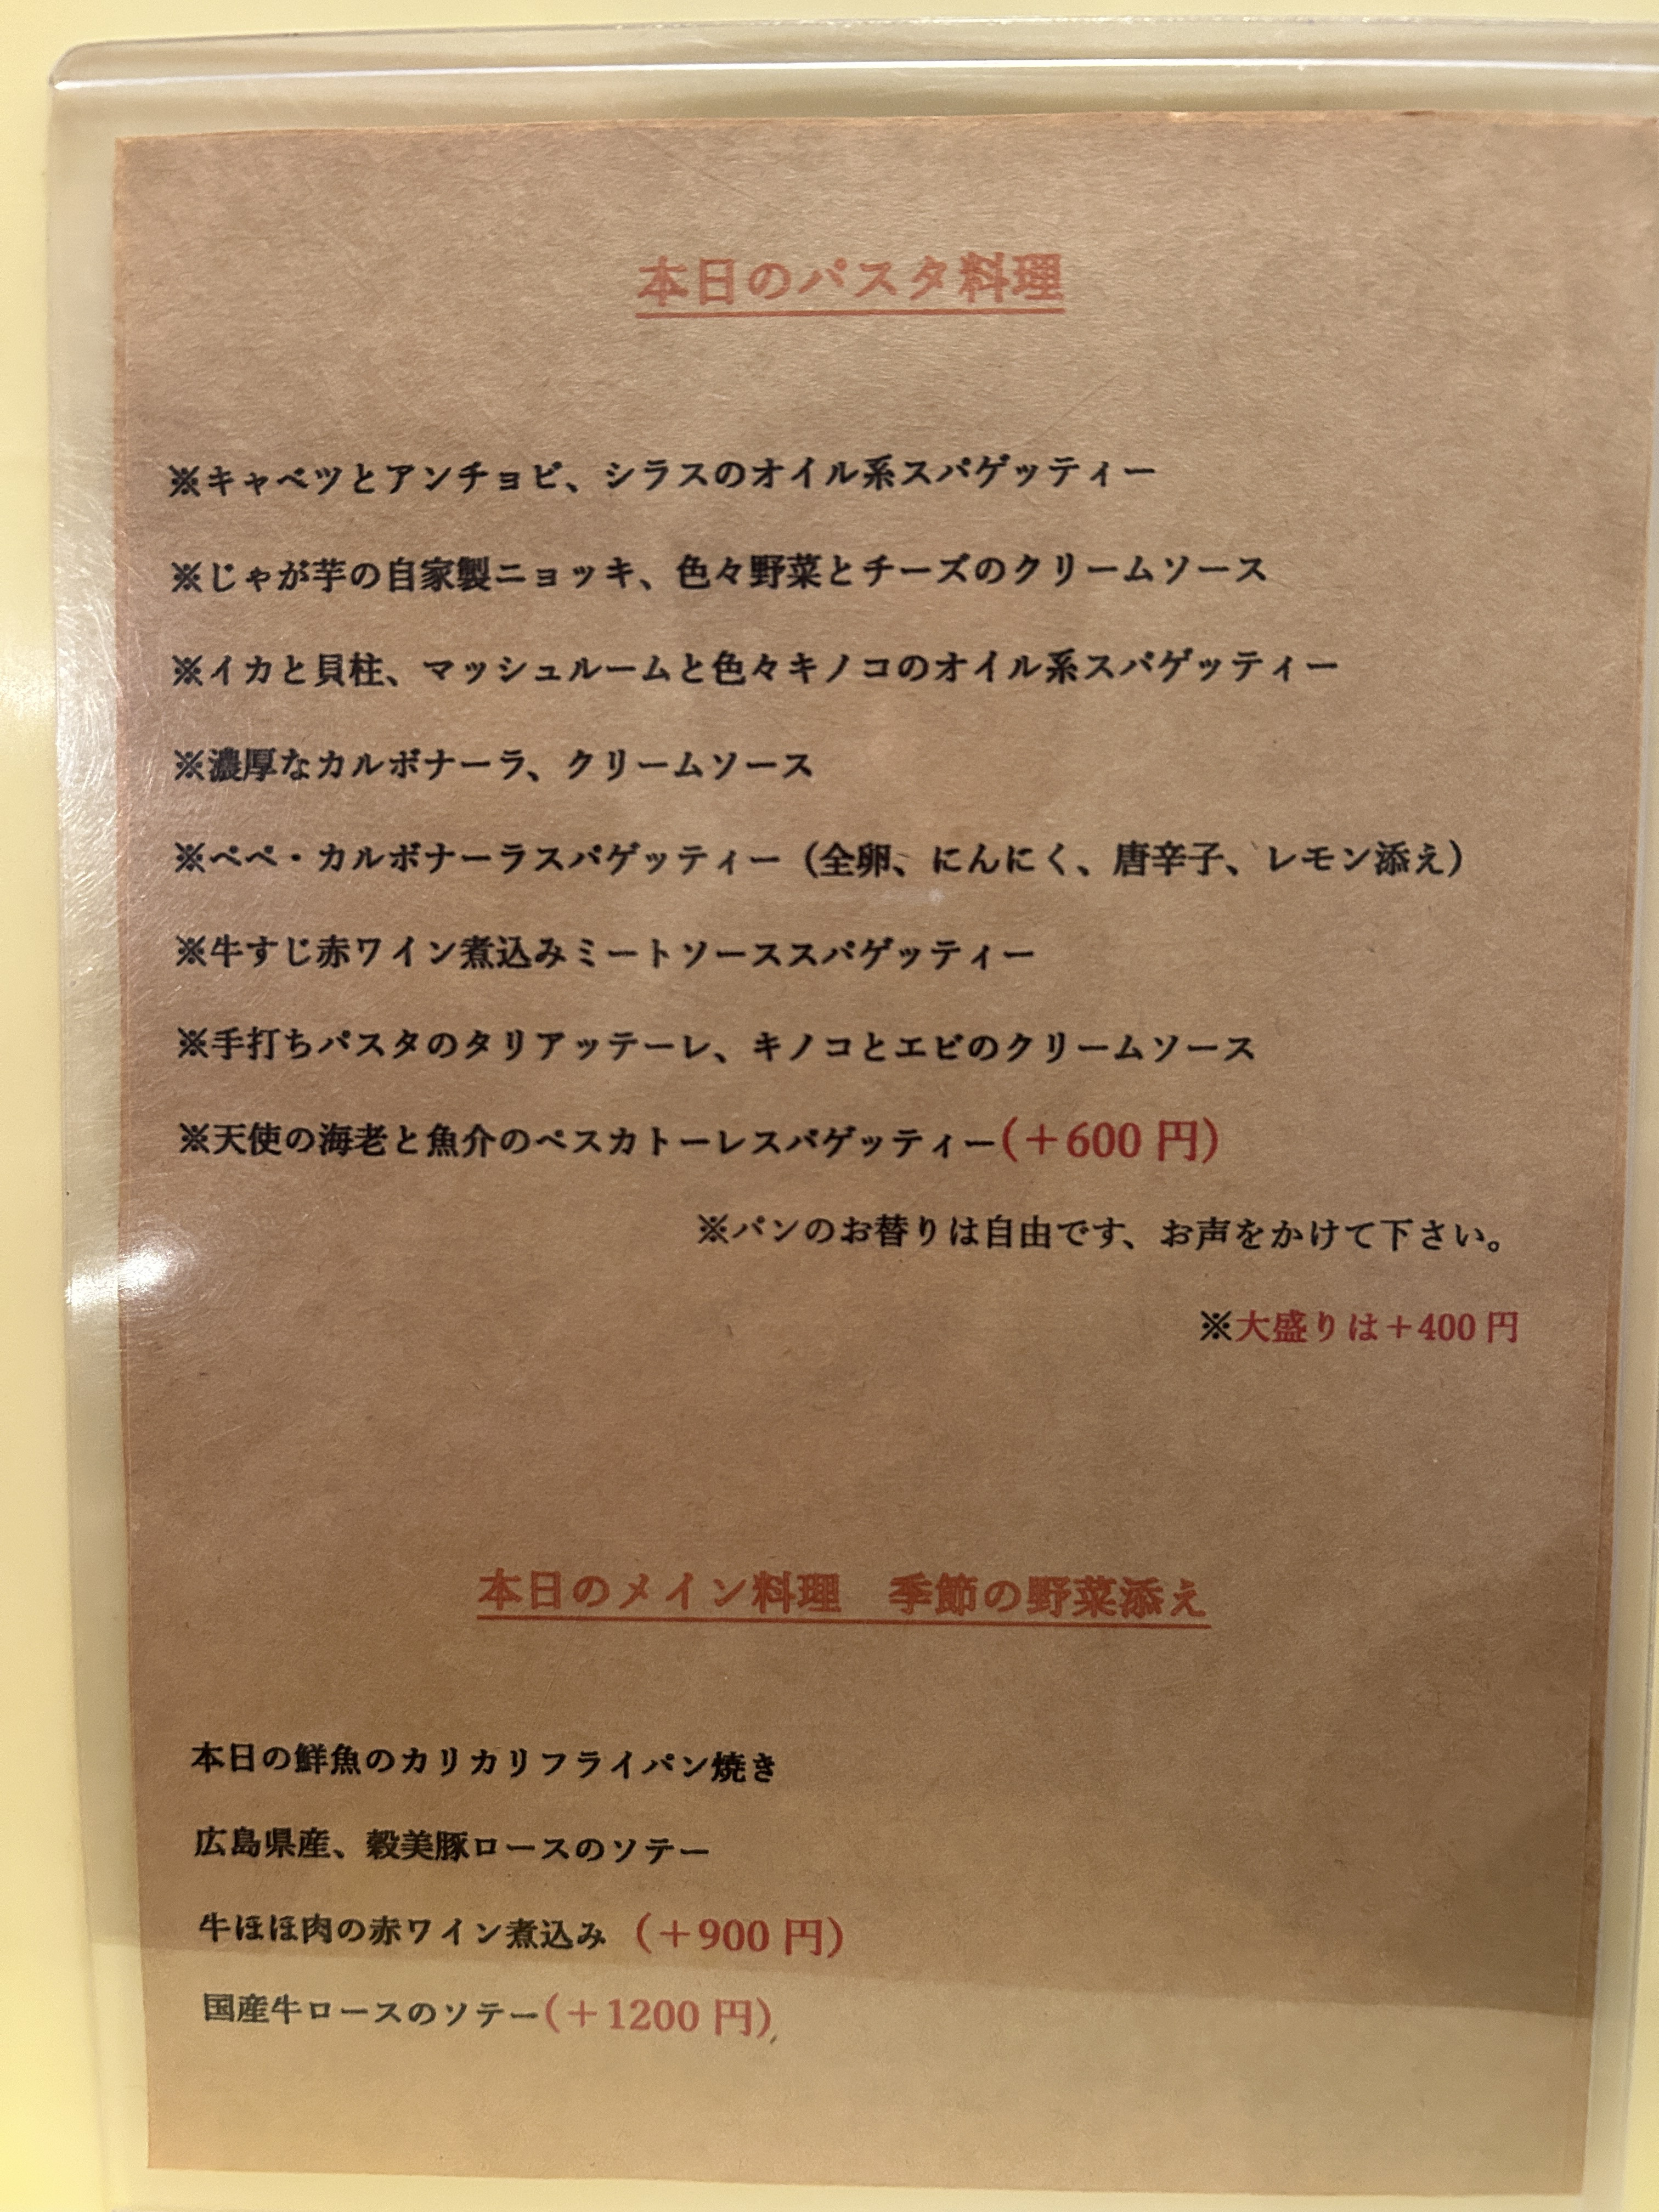 本日のパスタ料理
※キャベツとアンチョビ、シラスのオイル系スパゲッティー
※じゃが芋の自家製ニョッキ、色々野菜とチーズのクリームソース
※イカと貝柱、マッシュルームと色々キノコのオイル系スパゲッティー
※濃厚なカルボナーラ、クリームソース
※ペペ・カルボナーラスパゲッティー（全卵、にんにく、唐辛子、レモン添え）
※牛すじ赤ワイン煮込みミートソーススパゲッティー
※手打ちパスタのタリアッテーレ、キノコとエビのクリームソース
※天使の海老と魚介のペスカトーレスパゲッティー(＋600 円)
※パンのお替りは自由です、お声をかけて下さい。
※大盛りは＋400 円
本日のメイン料理　季節の野菜添え
本日の鮮魚のカリカリフライパン焼き
広島県産、穀美豚ロースのソテー
牛ほほ肉の赤ワイン煮込み（＋900 円）
国産牛ロースのソテー(＋1200 円)